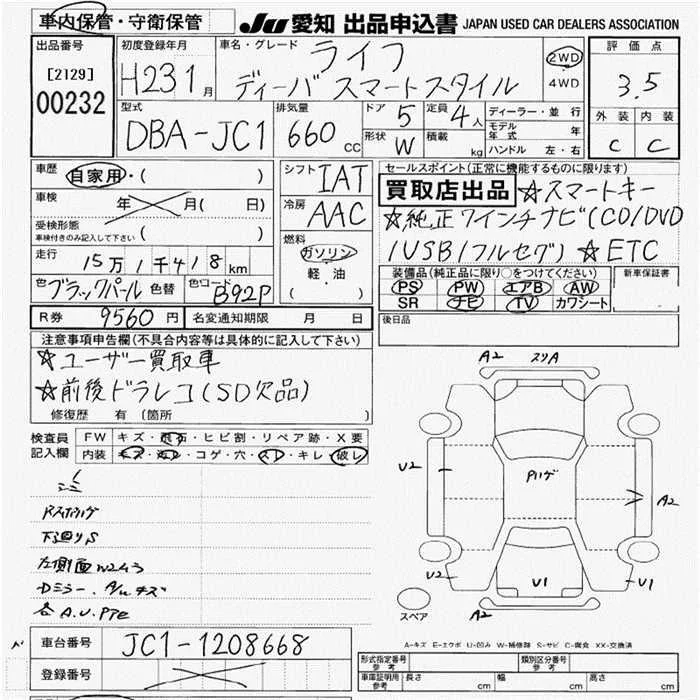 車内保管・守衛保管
JU 愛知 出品申込書 JAPAN USED CAR DEALERS ASSOCIATION
出品番号
[2129]
00232
初度登録年月
H23 1月
車名・グレード
ライフ
ディーバ スマートスタイル
2WD
4WD
評価点
3.5
外装 内装
C C
型式
DBA-JC1
排気量
660cc
ドア 5
定員 4人
形状 W
積載 kg
ディーラー・並行
モデル年式 年
ハンドル 左・右
車歴
自家用・( )
車検
年 月( 日)
受検形態
車検付きのみ記入して下さい ( )
走行
15万1千418km
色 ブラックパール 色替 色コード B92P
シフト IAT
冷房 AAC
燃料
ガソリン
軽・油
( )
セールスポイント(正常に機能するものに限ります)
買取店出品 ☆スマートキー
☆純正7インチナビ(CD/DVD
/USB/フルセグ) ☆ETC
装備品(純正品に限り○をつけてください)
PS PW エアB AW
SR ナビ TV カワシート
新車保証書
R券 9560円 名変通知期限 月 日
後日品
注意事項申告欄(不具合内容等は具体的に記入して下さい)
☆ユーザー買取車
☆前後ドラレコ(SD欠品)
修復歴 有 (箇所 )
検査員
記入欄
FW キズ・飛石・ヒビ割・リペア跡・X要
内装 キズ・コゲ・穴・スレ・キレ・破レ
下廻りS
左側面
各A.U.PTE
A2
スリA
U2
Pハゲ
A2
U2
U1
U1
A2
スペア
A-キズ E-エクボ U-凹み W-補修跡 S-サビ C-腐食 XX-交換済
車台番号 JC1-1208668
登録番号
形式指定番号 参考
類別区分番号 参考
車庫証明用 参考 長さ cm 幅 cm 高さ cm